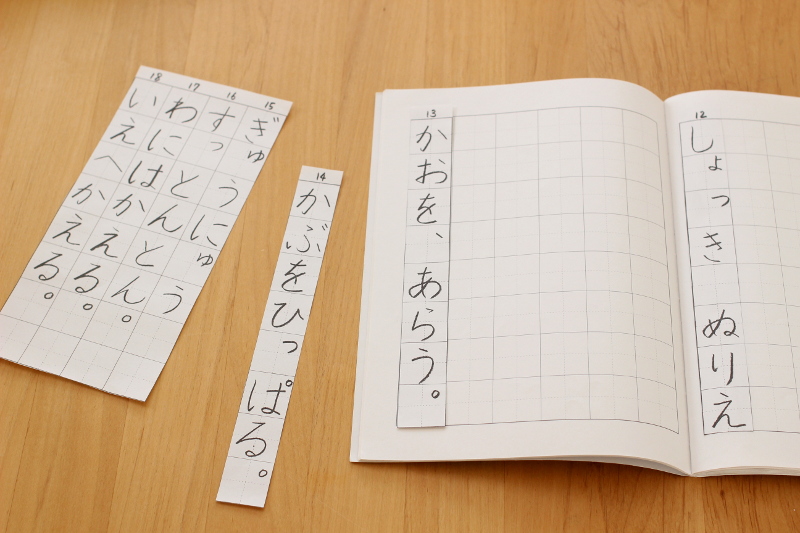 12
しょっき ぬりえ
13
かおを、あらう。
14
かぶをひっぱる。
15
ぎゅうにゅう
16
すっとんとん。
17
わにはかえる。
18
いえへかえる。